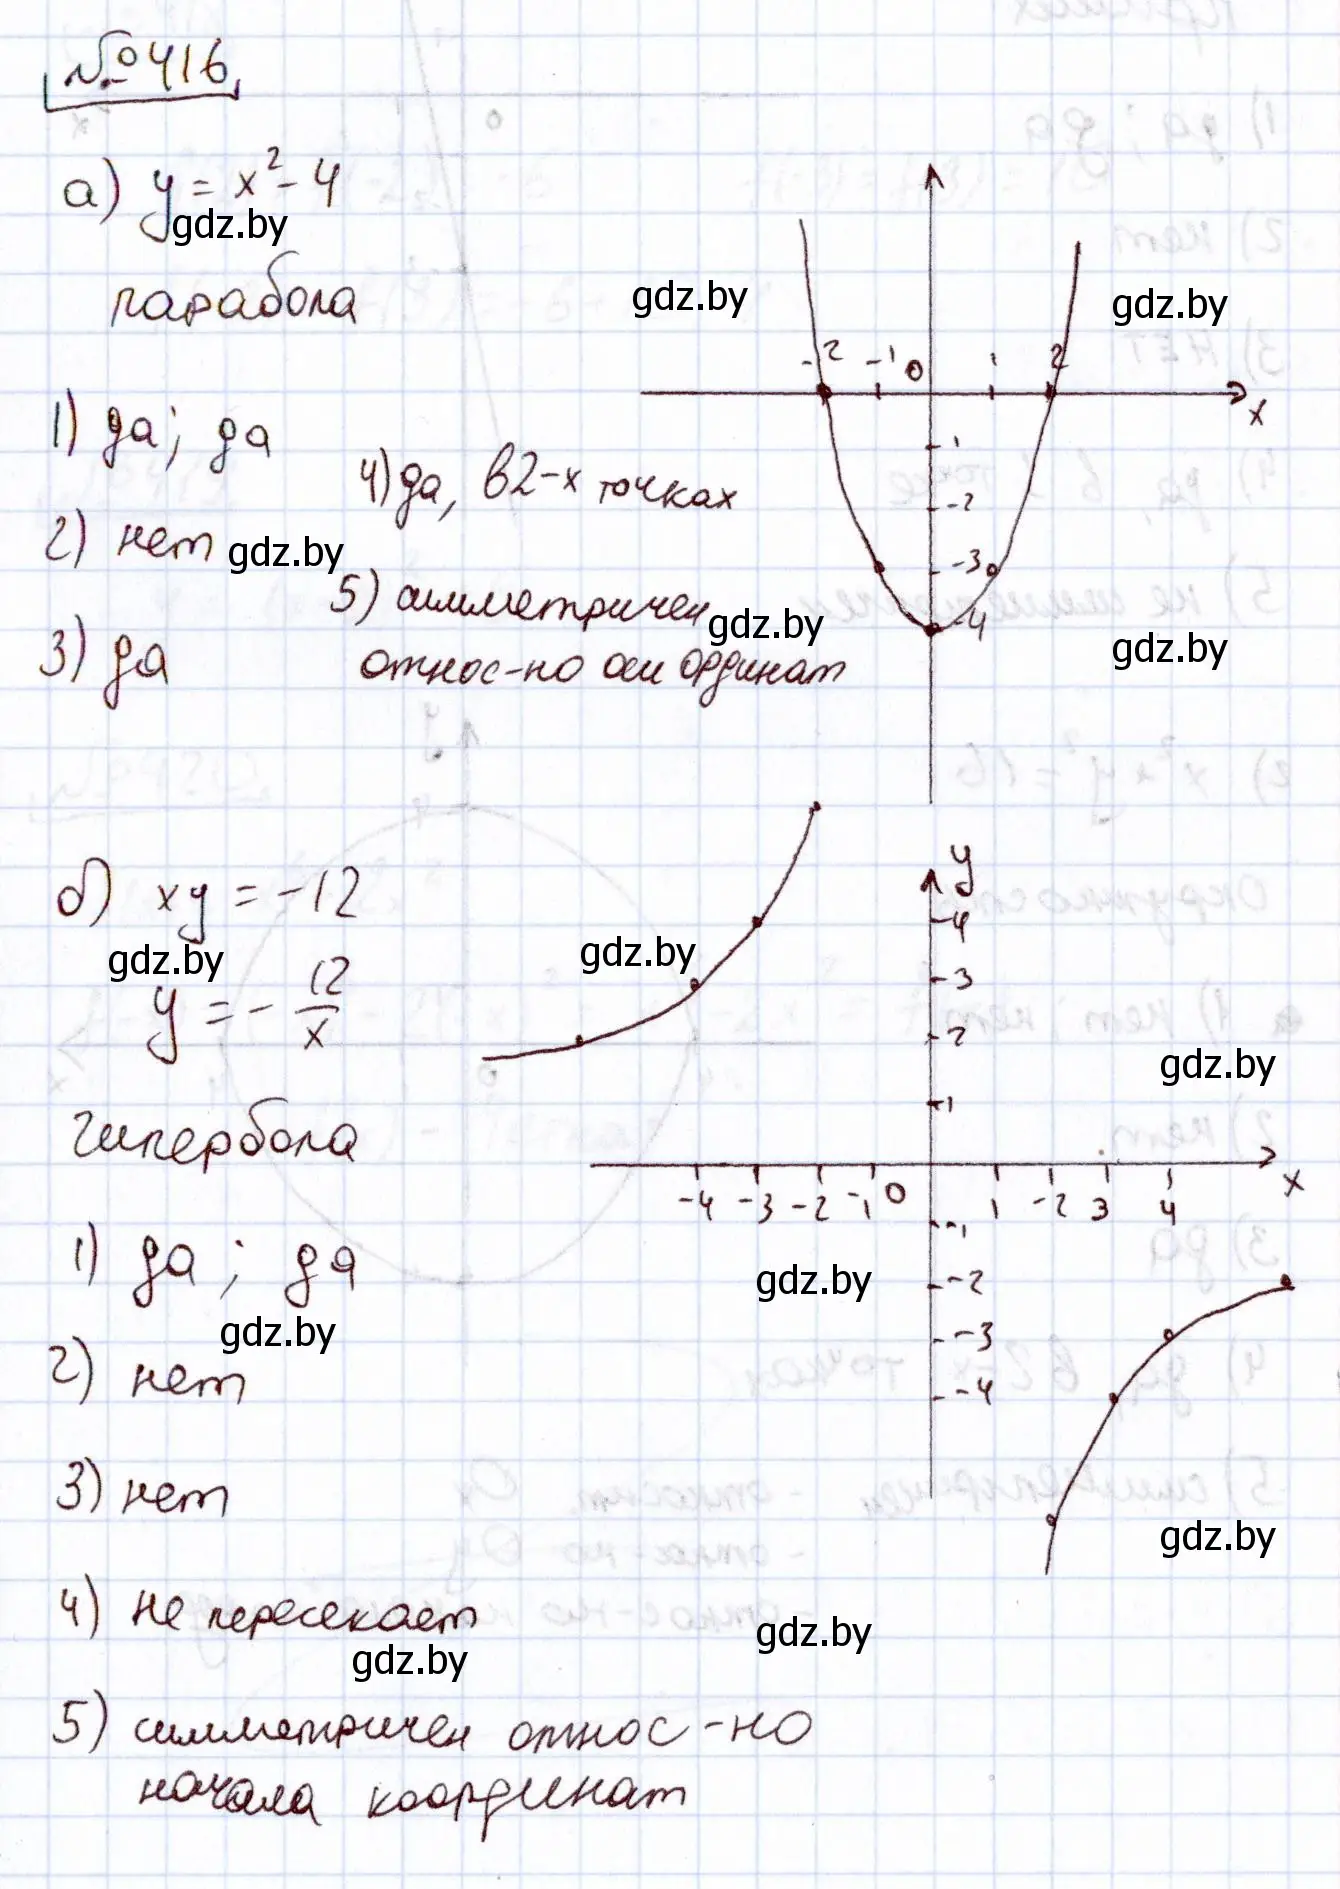 №416
а) y = x² - 4
gdz.by
парабола
gdz.by
gdz.by
-2 -1 0 1 2
x
-1
-2
-3
-4
1) да; да
4) да, в 2-х точках
2) нет
gdz.by
5) симметричен
gdz.by
gdz.by
3) да
относ-но оси ординат
б) xy = -12
gdz.by
gdz.by
y = - 12/x
y
4
3
2
1
gdz.by
гипербола
-4 -3 -2 -1 0 1 -2 3 4
x
-1
-2
-3
-4
1) да; да
gdz.by
gdz.by
2) нет
3) нет
gdz.by
4) не пересекает
gdz.by
gdz.by
5) симметричен относ-но
начала координат